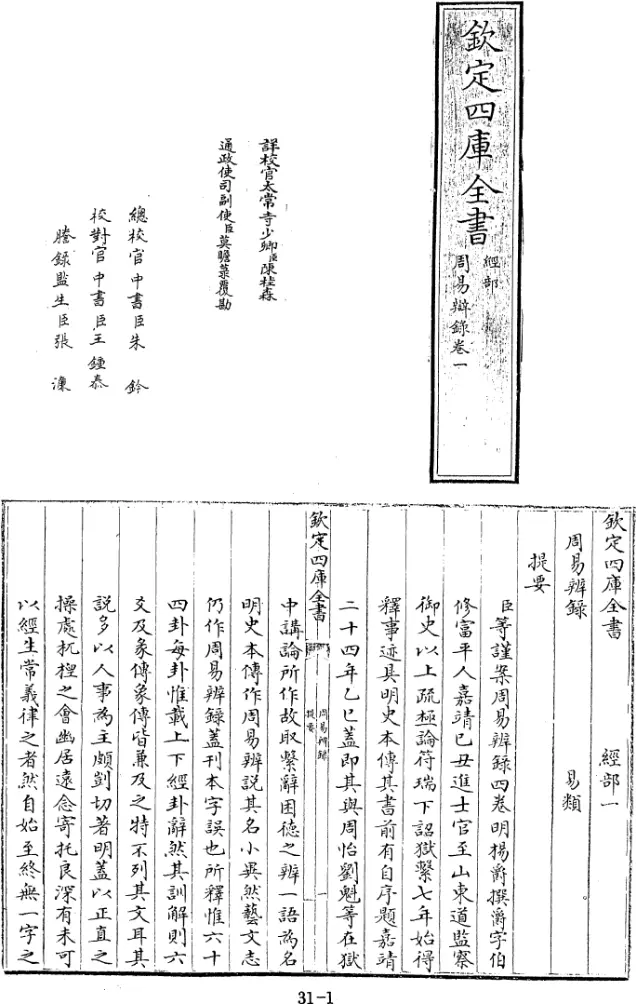 欽定四庫全書
經部
周易辯錄卷一
詳校官太常寺少卿臣陳桂森
通政使司副使臣莫瞻菉覆勘
總校官中書臣朱鈐
校對官中書臣王鍾泰
謄錄監生臣張濂
欽定四庫全書 經部一
周易辨錄 易類
提要
臣等謹案周易辨錄四卷明楊爵撰爵字伯
修富平人嘉靖己丑進士官至山東道監察
御史以上疏極論符瑞下詔獄繫七年始得
釋事迹具明史本傳其書前有自序題嘉靖
二十四年乙巳蓋即其與周怡劉魁等在獄
欽定四庫全書
周易辨錄
提要
一
中講論所作故取繫辭困德之辨一語為名
明史本傳作周易辨說其名小異然藝文志
仍作周易辨錄蓋刊本字誤也所釋惟六十
四卦每卦惟載上下經卦辭然其訓解則六
爻及彖傳象傳皆兼及之特不列其文耳其
說多以人事為主頗剴切著明蓋以正直之
操處杌桯之會幽居遠念寄托良深有未可
以經生常義律之者然自始至終無一字之
31-1